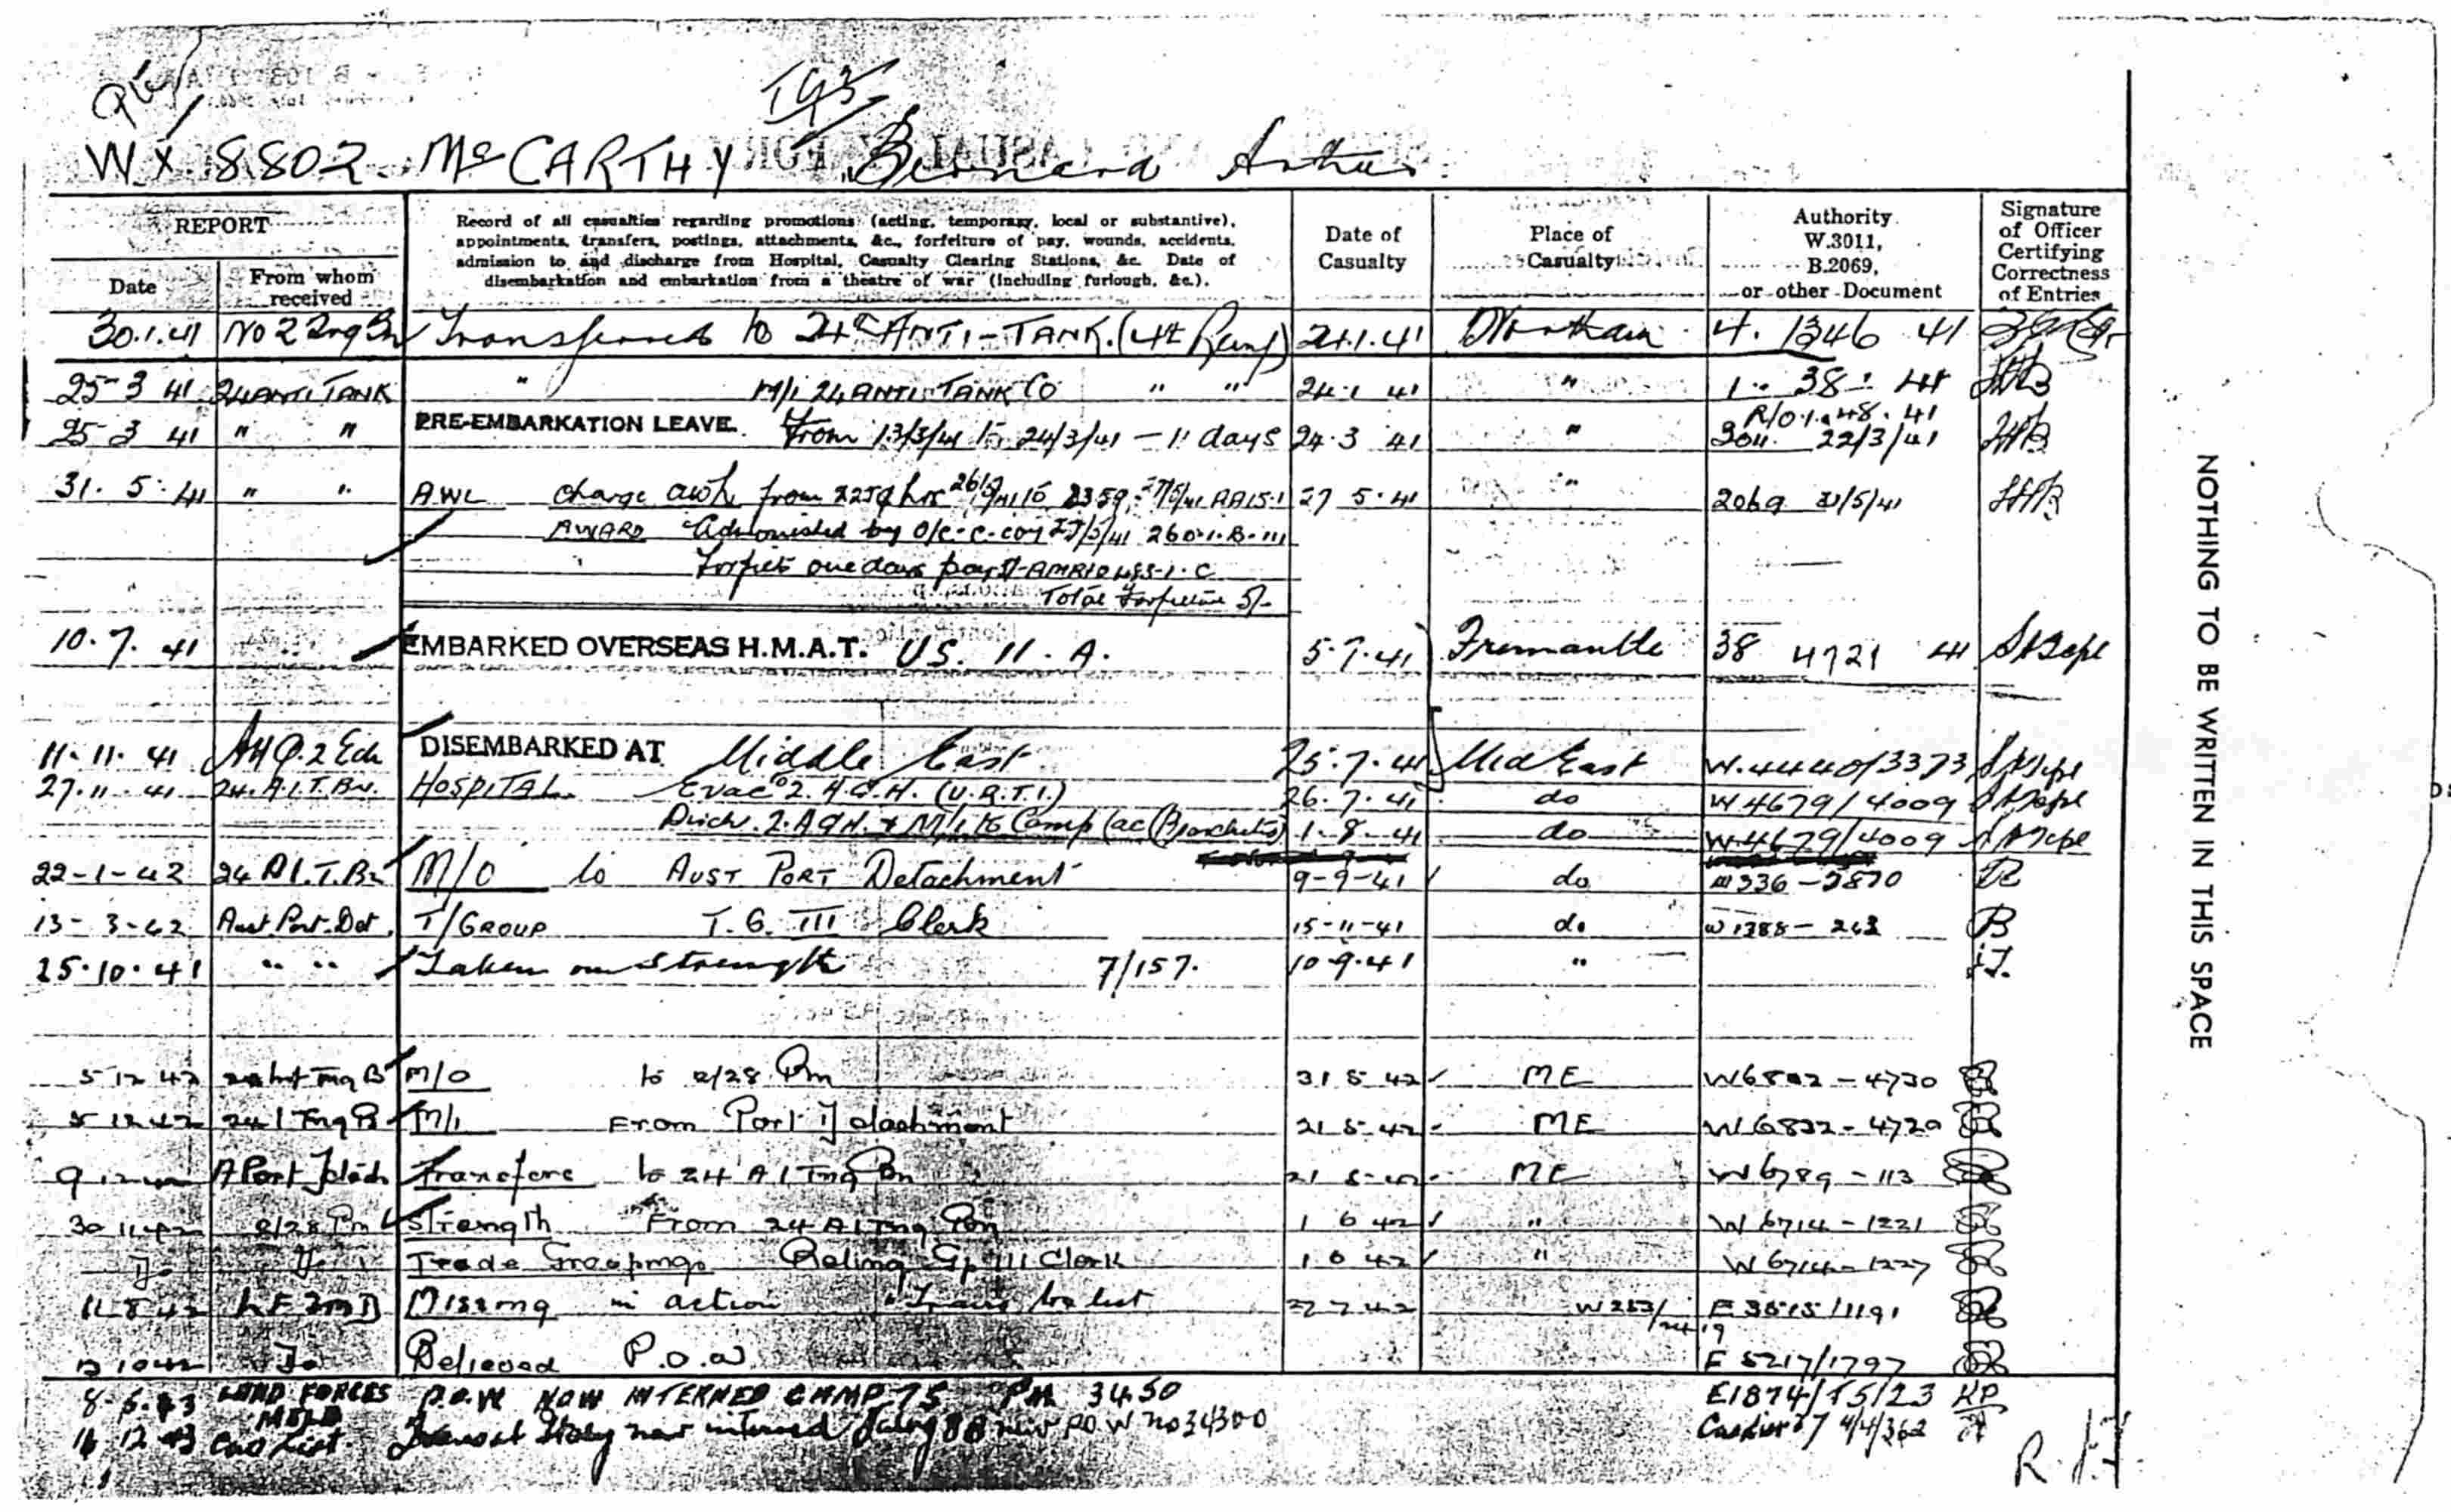 TG3
WX 8802 McCARTHY Bernard Arthur
REPORT
Date
From whom received
Record of all casualties regarding promotions (acting, temporary, local or substantive),
appointments, transfers, postings, attachments, &c., forfeiture of pay, wounds, accidents,
admission to and discharge from Hospital, Casualty Clearing Stations, &c. Date of
disembarkation and embarkation from a theatre of war (including furlough, &c.).
Date of Casualty
Place of Casualty
Authority W.3011, B.2069, or other Document
Signature of Officer Certifying Correctness of Entries
30.1.41 No 2 Trg Bn Transferred to 24th ANTI-TANK. 24.1.41 Northam 4. 1346 41
25-3 41 24 ANTI TANK " M/i 24 ANTI TANK CO " " 24.1 41 " 1 38 41
R/O 1. 48. 41
25 3 41 " " PRE-EMBARKATION LEAVE. From 13/3/41 to 24/3/41 - 11 days 24.3 41 " 3011. 22/3/41
31. 5. 41 " " AWL charge awl from 2259 hrs 26/5/41 to 2359 27/5/41 AA15.1 27 5.41 " 2069 31/5/41
AWARD Admonished by O/C. C. coy 27/5/41 260.1.B.111
Forfiets one days pay AMR&O 483-1.C
Total Forfeiture 5/-
10.7. 41 EMBARKED OVERSEAS H.M.A.T. US. 11. A. 5.7.41 Fremantle 38 4721 41
11. 11. 41 AHQ. 2 Ech DISEMBARKED AT Middle East 25.7.41 Mid East W.4440/3373
27.11.41 24. A.I.T.Bn. HOSPITAL Evac 2. A.G.H. (U.R.T.I.) 26.7.41 do W 4679/4009
Disch. 2. AGH. & M/i to Camp (ac Bronchitis) 1-8-41 do W 4679/4009
22-1-42 24 A I.T.Bn M/O to AUST PORT Detachment 9-9-41 do 336-2870
13-3-42 Aust. Port. Det. T/GROUP T.G. III Clerk 15-11-41 do W 1388-263
25.10.41 " " Taken on Strength 7/157. 10.9.41 "
5 12 42 24 Inf Trng B M/O to 2/28 Bn 31 5 42 ME W6802-4730
5 12 42 24 I Trng B M/i From Port Detachment 21 5 42 ME W 6832-4720
9 12 42 A Port Detach Transfers to 24 A I Trng Bn 21 5 42 ME W 6789-113
30 11 42 2/28 Bn Strength From 24 A I Trng Bn 1 6 42 " W 6714-1221
Do Do Trade Groupings Gp III Clerk 1 6 42 " W 6714-1227
11 8 42 Missing in action 27 7 42 W 253/2419 E 3515/1191
13 10 42 Do Believed P.O.W E 5217/1797
8-5.43 LAND FORCES MELB P.O.W NOW INTERNED CAMP 75 PM 3450 E1874/T5/23 KP
16 12 43 Cas List. Transf Italy now interned Stalag 8B new POW no 34300 Caslist 4/4/362
NOTHING TO BE WRITTEN IN THIS SPACE